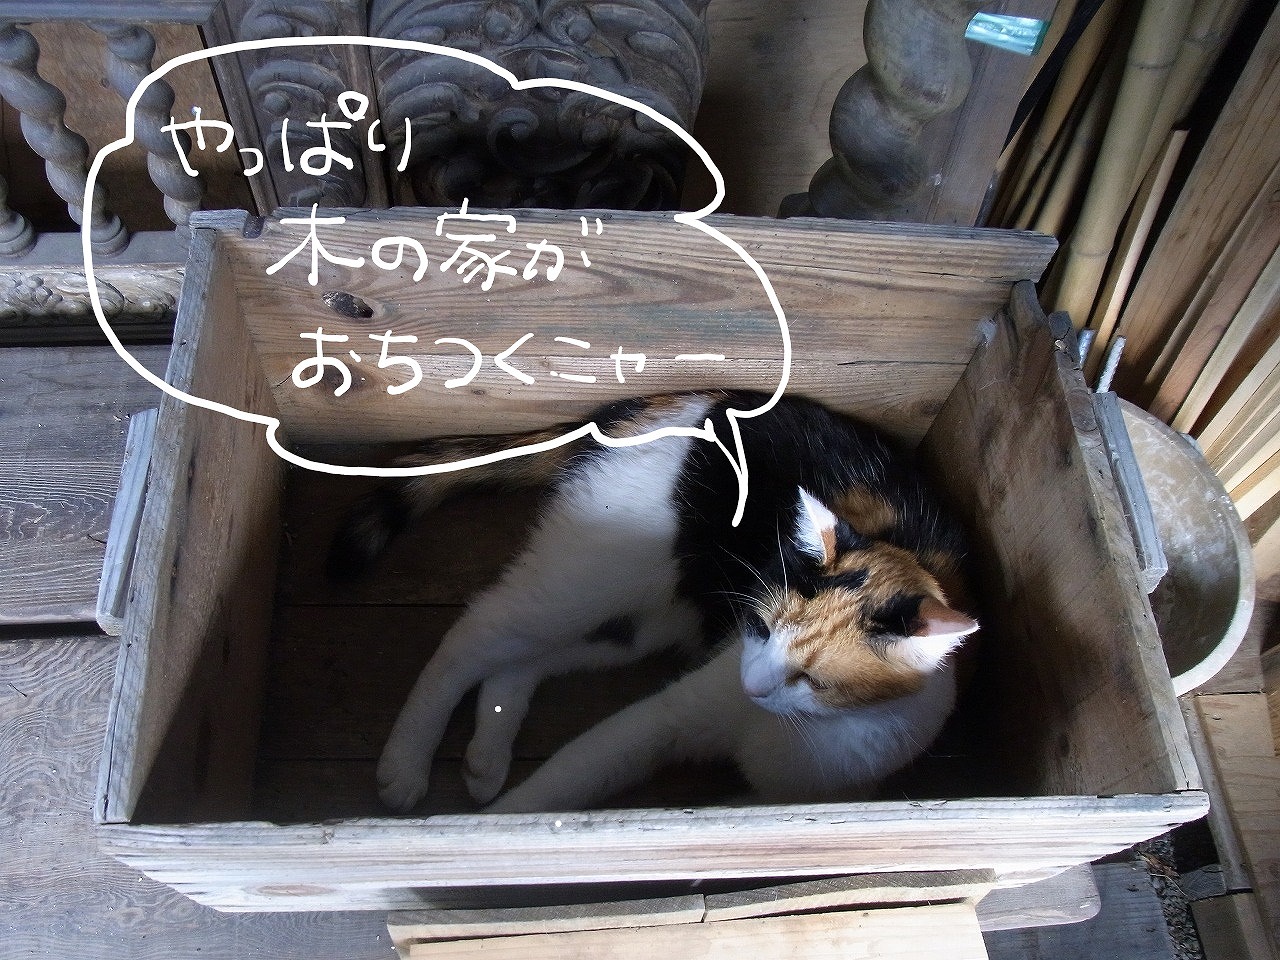 やっぱり
木の家が
おちつくニャー